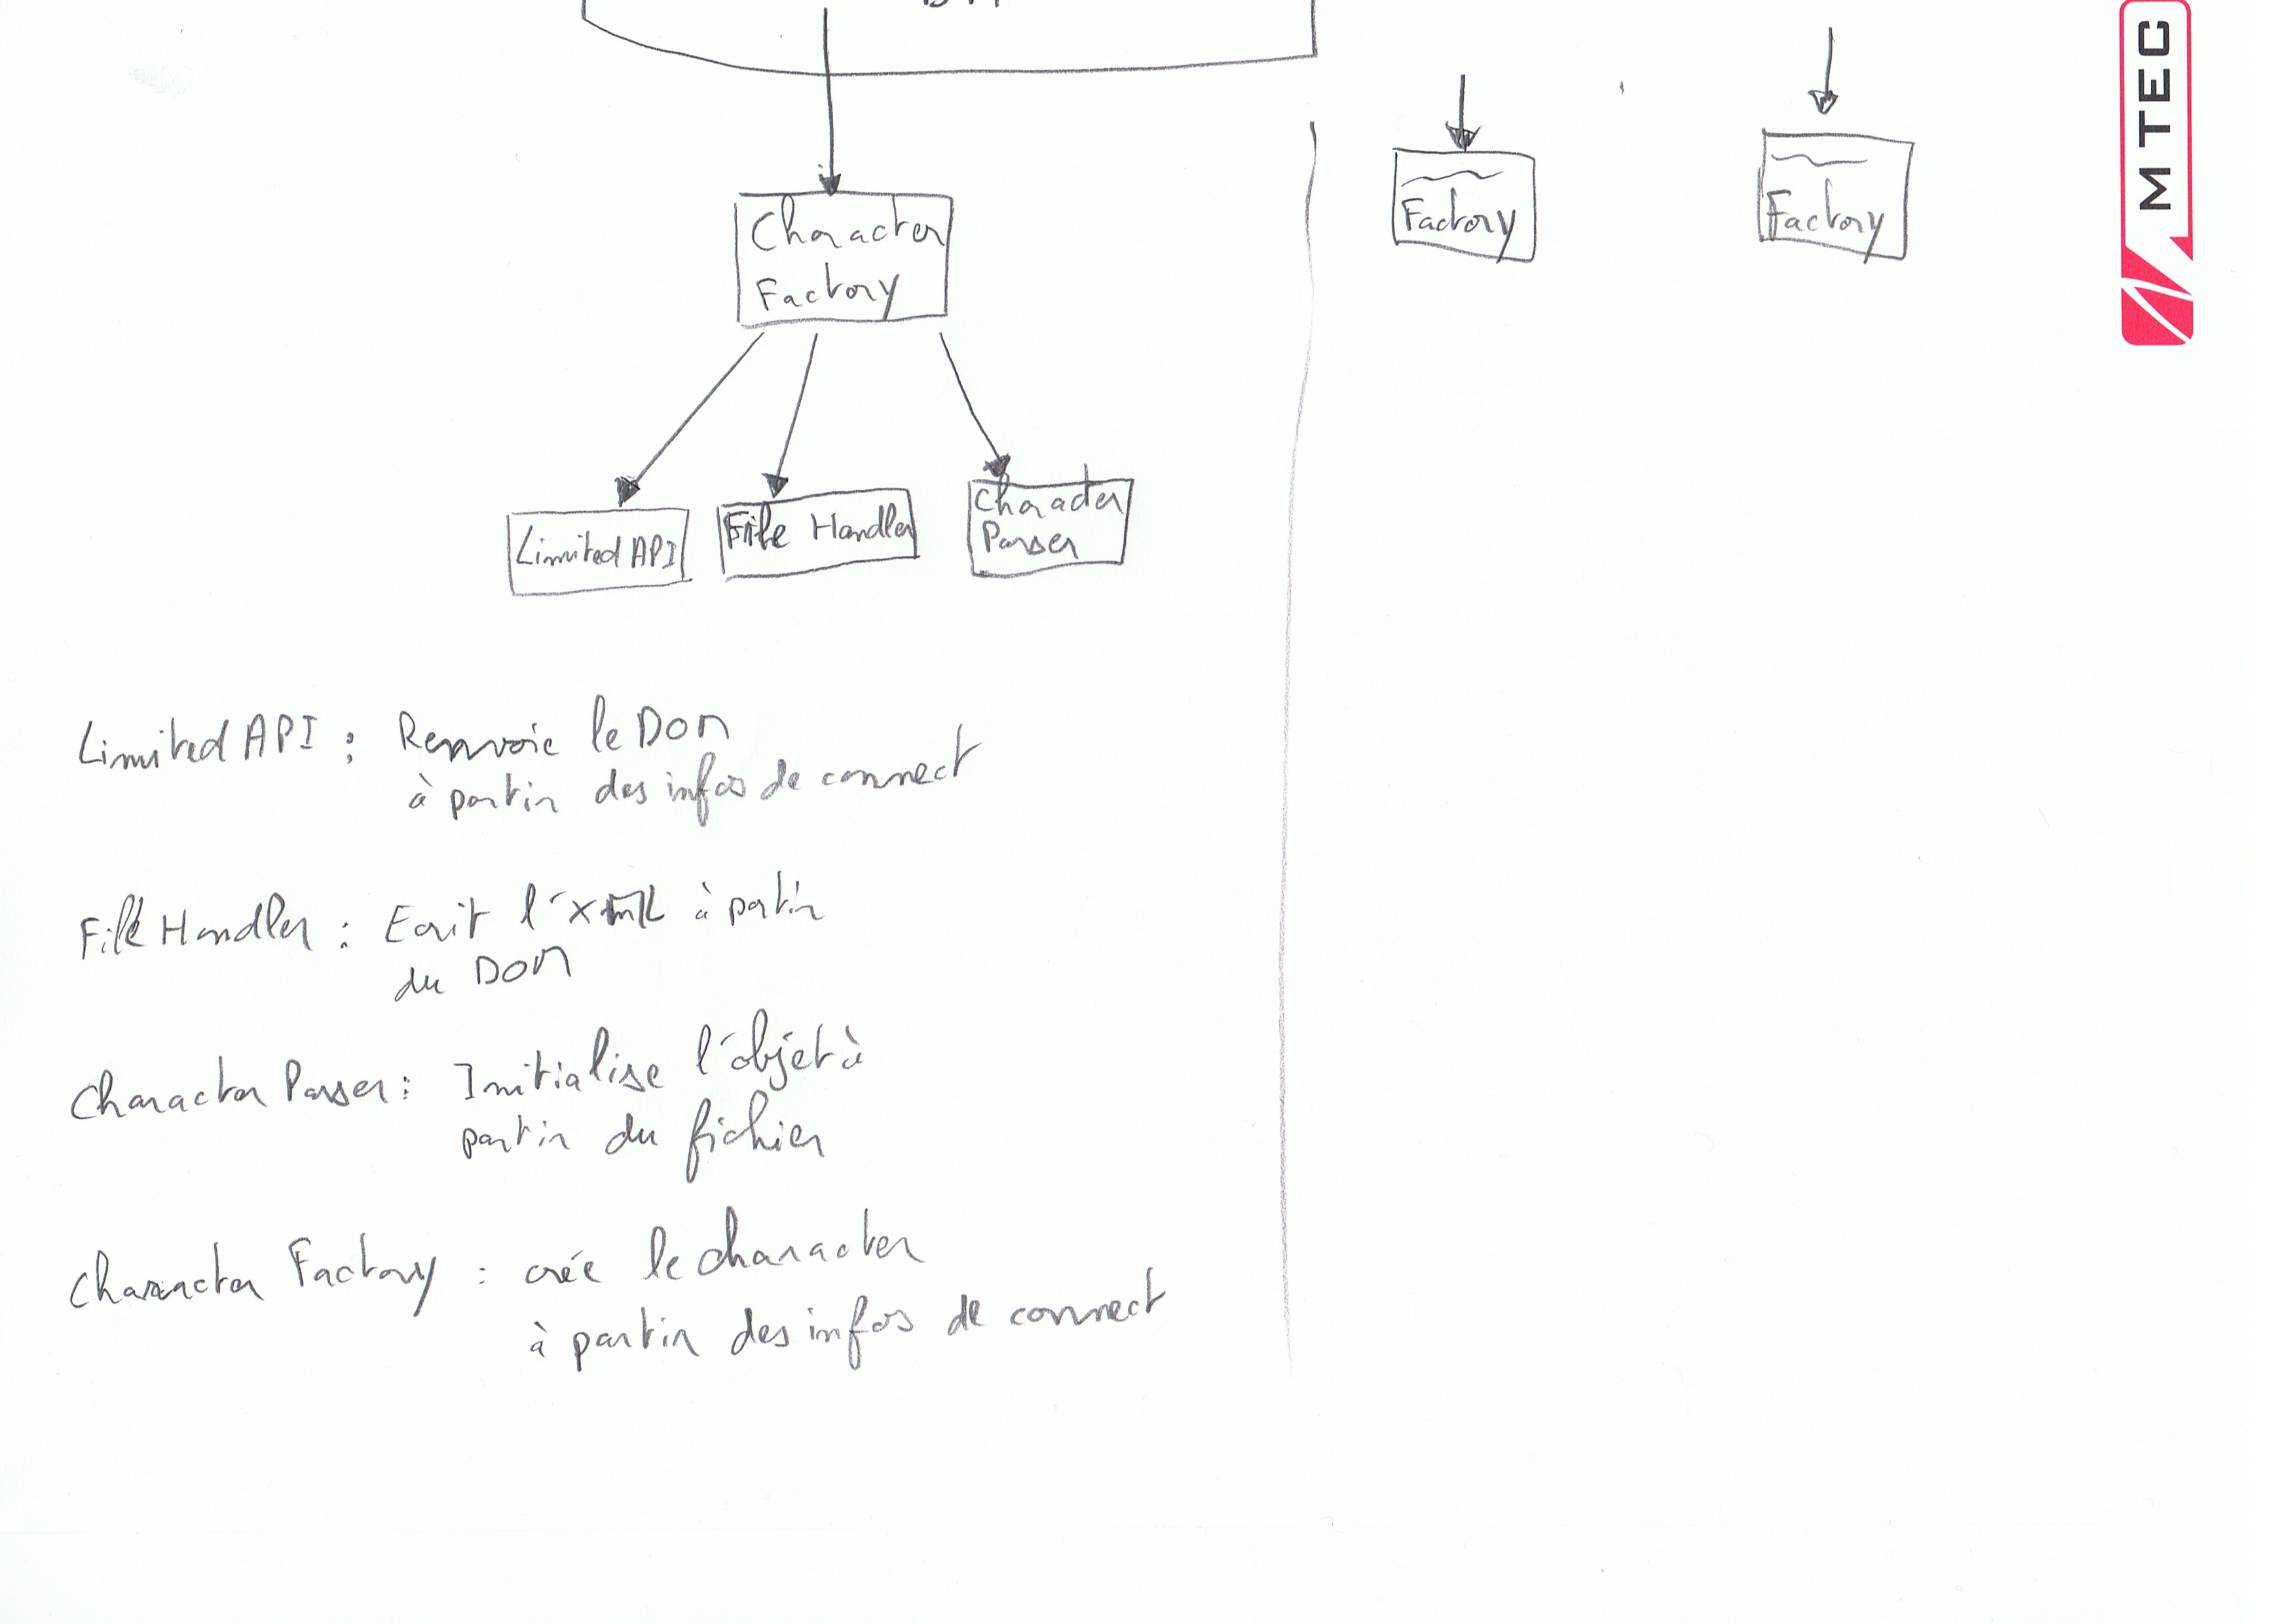 Character
Factory
Factory
Factory
Limited API
File Handler
Character
Parser
Limited API : Renvoie le DOM
à partir des infos de connect
File Handler : Ecrit l'XML à partir
du DOM
Character Parser : Initialise l'objet à
partir du fichier
Character Factory : crée le character
à partir des infos de connect
M TEC